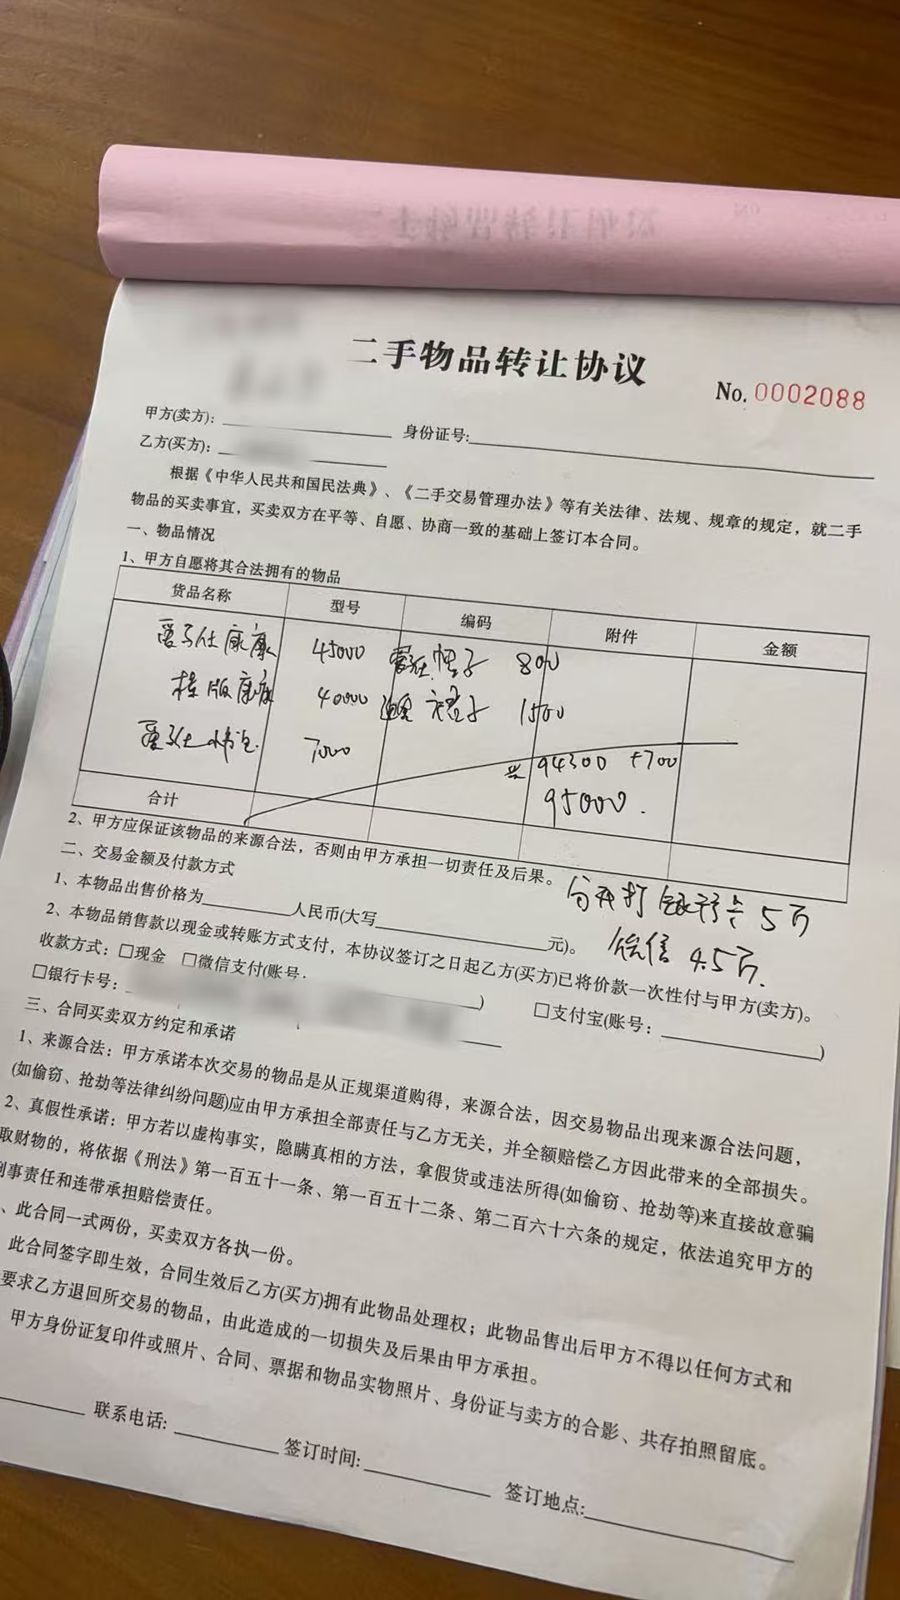 二手物品转让协议
No. 0002088
甲方(卖方): 身份证号:
乙方(买方):
根据《中华人民共和国民法典》、《二手交易管理办法》等有关法律、法规、规章的规定，就二手
物品的买卖事宜，买卖双方在平等、自愿、协商一致的基础上签订本合同。
一、物品情况
1、甲方自愿将其合法拥有的物品
货品名称 型号 编码 附件 金额
爱马仕康康 45000 帽子 800
康康 40000 1500
爱马仕 7000
共 94300 +700
95000.
合计
2、甲方应保证该物品的来源合法，否则由甲方承担一切责任及后果。
二、交易金额及付款方式
分开打 银行卡 5万
1、本物品出售价格为 人民币(大写 元)。
微信 4.5万.
2、本物品销售款以现金或转账方式支付，本协议签订之日起乙方(买方)已将价款一次性付与甲方(卖方)。
收款方式: □现金 □微信支付(账号: ) □支付宝(账号: )
□银行卡号:
三、合同买卖双方约定和承诺
1、来源合法: 甲方承诺本次交易的物品是从正规渠道购得，来源合法，因交易物品出现来源合法问题，
(如偷窃、抢劫等法律纠纷问题)应由甲方承担全部责任与乙方无关，并全额赔偿乙方因此带来的全部损失。
2、真假性承诺: 甲方若以虚构事实，隐瞒真相的方法，拿假货或违法所得(如偷窃、抢劫等)来直接故意骗
取财物的，将依据《刑法》第一百五十一条、第一百五十二条、第二百六十六条的规定，依法追究甲方的
刑事责任和连带承担赔偿责任。
、此合同一式两份，买卖双方各执一份。
此合同签字即生效，合同生效后乙方(买方)拥有此物品处理权; 此物品售出后甲方不得以任何方式和
要求乙方退回所交易的物品，由此造成的一切损失及后果由甲方承担。
甲方身份证复印件或照片、合同、票据和物品实物照片、身份证与卖方的合影、共存拍照留底。
联系电话: 签订时间: 签订地点: